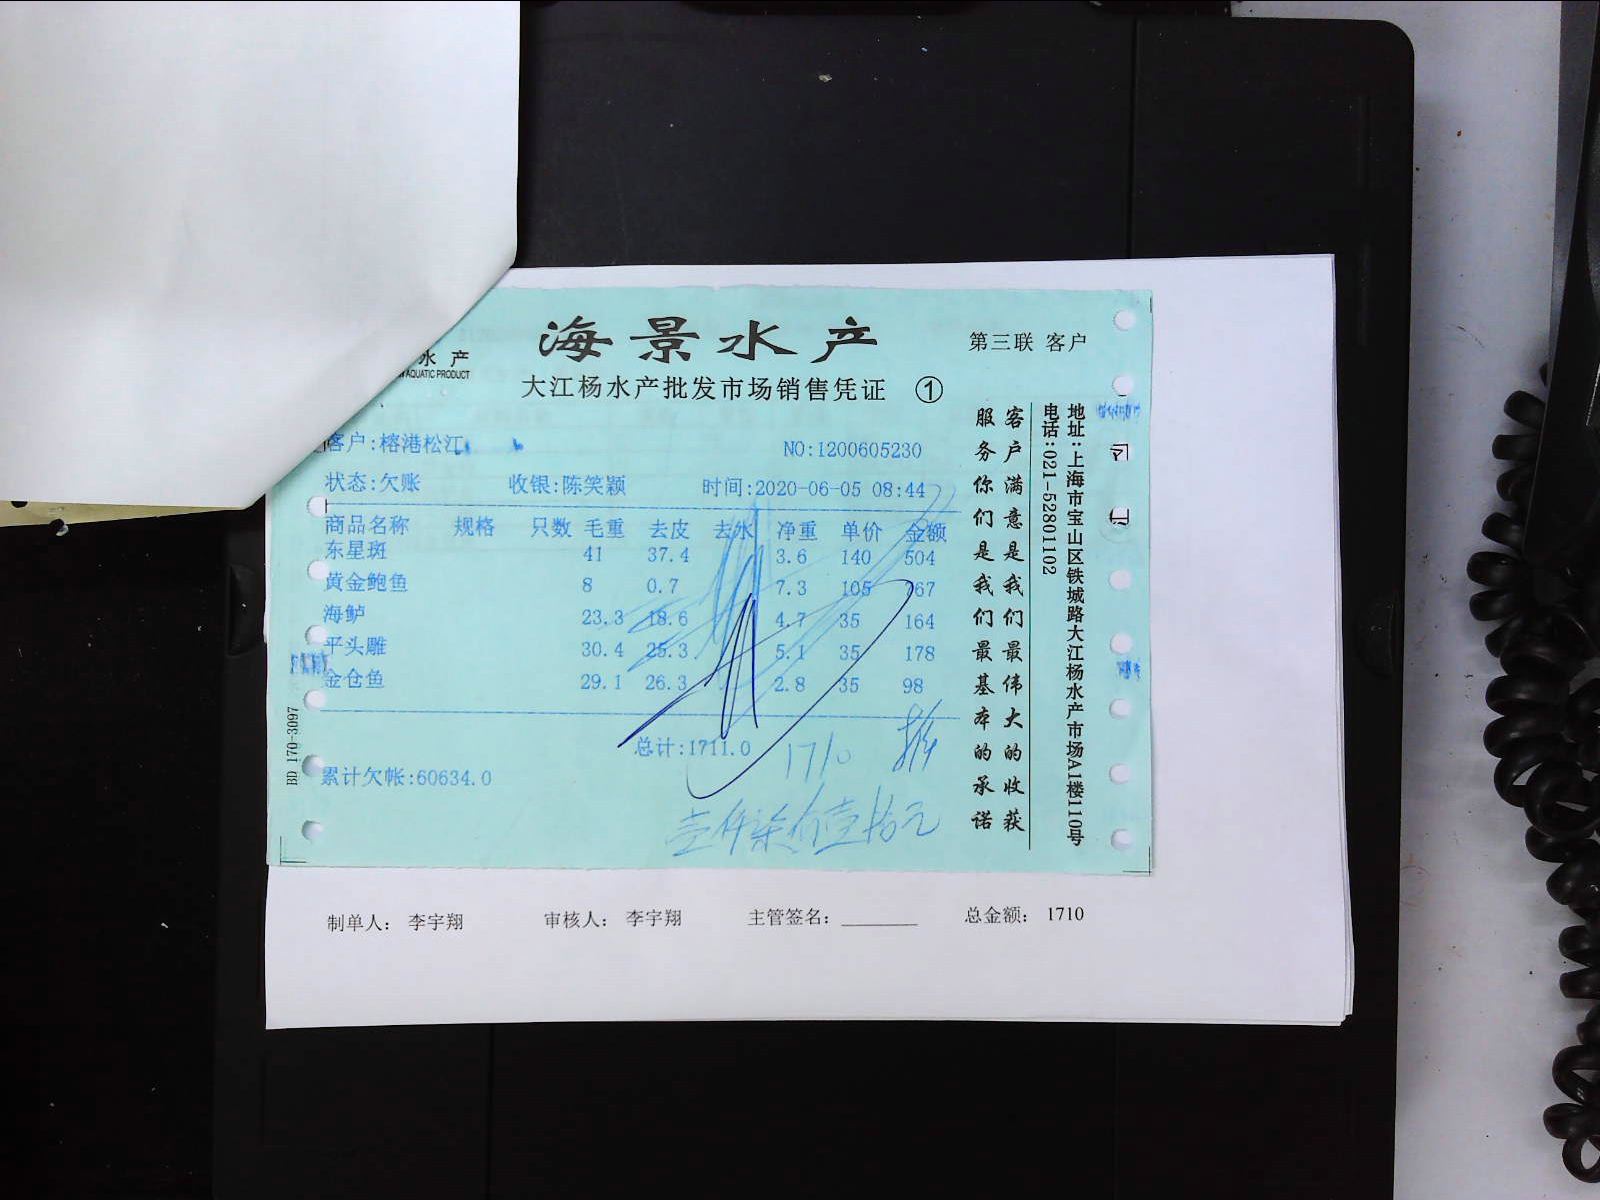 海景水产
第三联 客户
水产
AQUATIC PRODUCT
大江杨水产批发市场销售凭证 ①
客户:榕港松江
NO:1200605230
状态:欠账 收银:陈笑颖 时间:2020-06-05 08:44
商品名称 规格 只数 毛重 去皮 去水 净重 单价 金额
东星斑 41 37.4 3.6 140 504
黄金鲍鱼 8 0.7 7.3 105 767
海鲈 23.3 18.6 4.7 35 164
平头雕 30.4 25.3 5.1 35 178
金仓鱼 29.1 26.3 2.8 35 98
总计:1711.0
1710
累计欠帐:60634.0
壹仟柒佰壹拾元
客户满意是我们最伟大的收获
服务你们是我们最基本的承诺
地址:上海市宝山区铁城路大江杨水产市场A1楼110号
电话:021-52801102
BD 170-3097
制单人: 李宇翔 审核人: 李宇翔 主管签名: 总金额: 1710